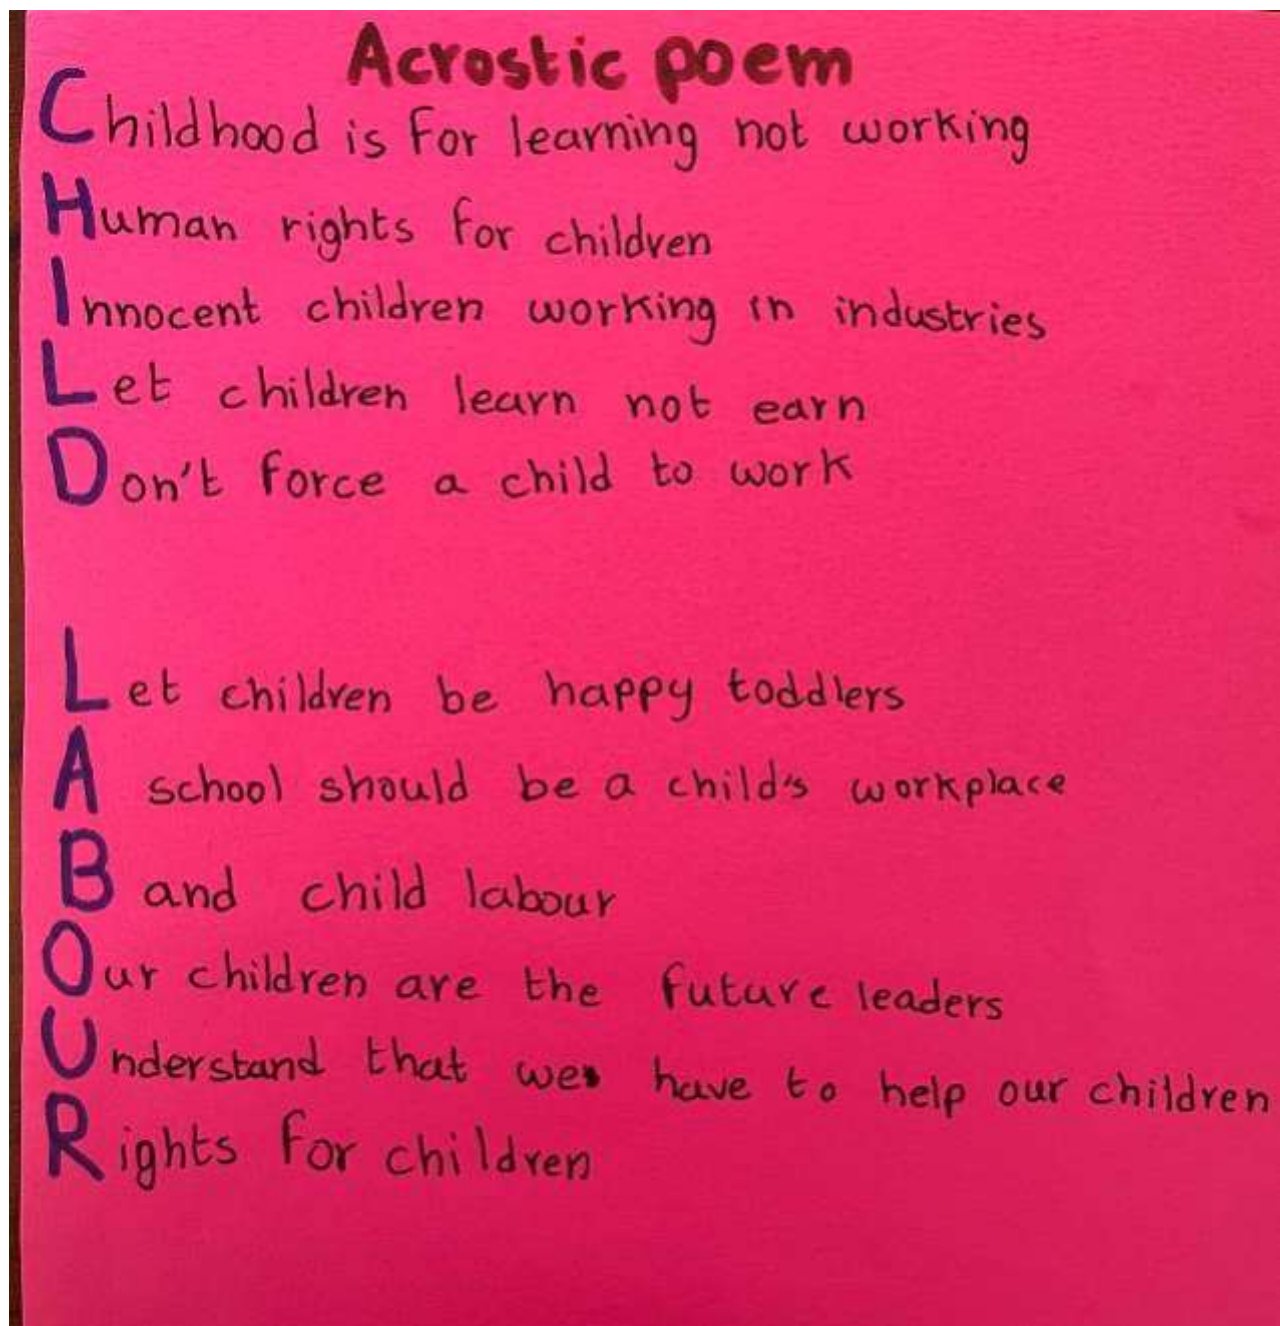 Acrostic poem
Childhood is for learning not working
Human rights for children
Innocent children working in industries
Let children learn not earn
Don't force a child to work
Let children be happy toddlers
A school should be a child's workplace
Band child labour
Our children are the future leaders
Understand that we have to help our children
Rights for children